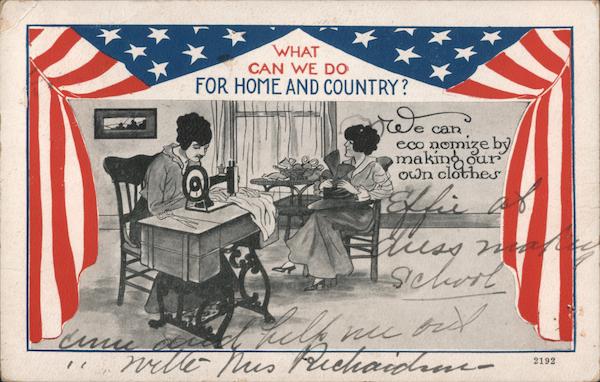 WHAT
CAN WE DO
FOR HOME AND COUNTRY?
We can
economize by
making our
own clothes
Effie at
dress making
School
come and help me out
.. write Mrs Richardson
2192